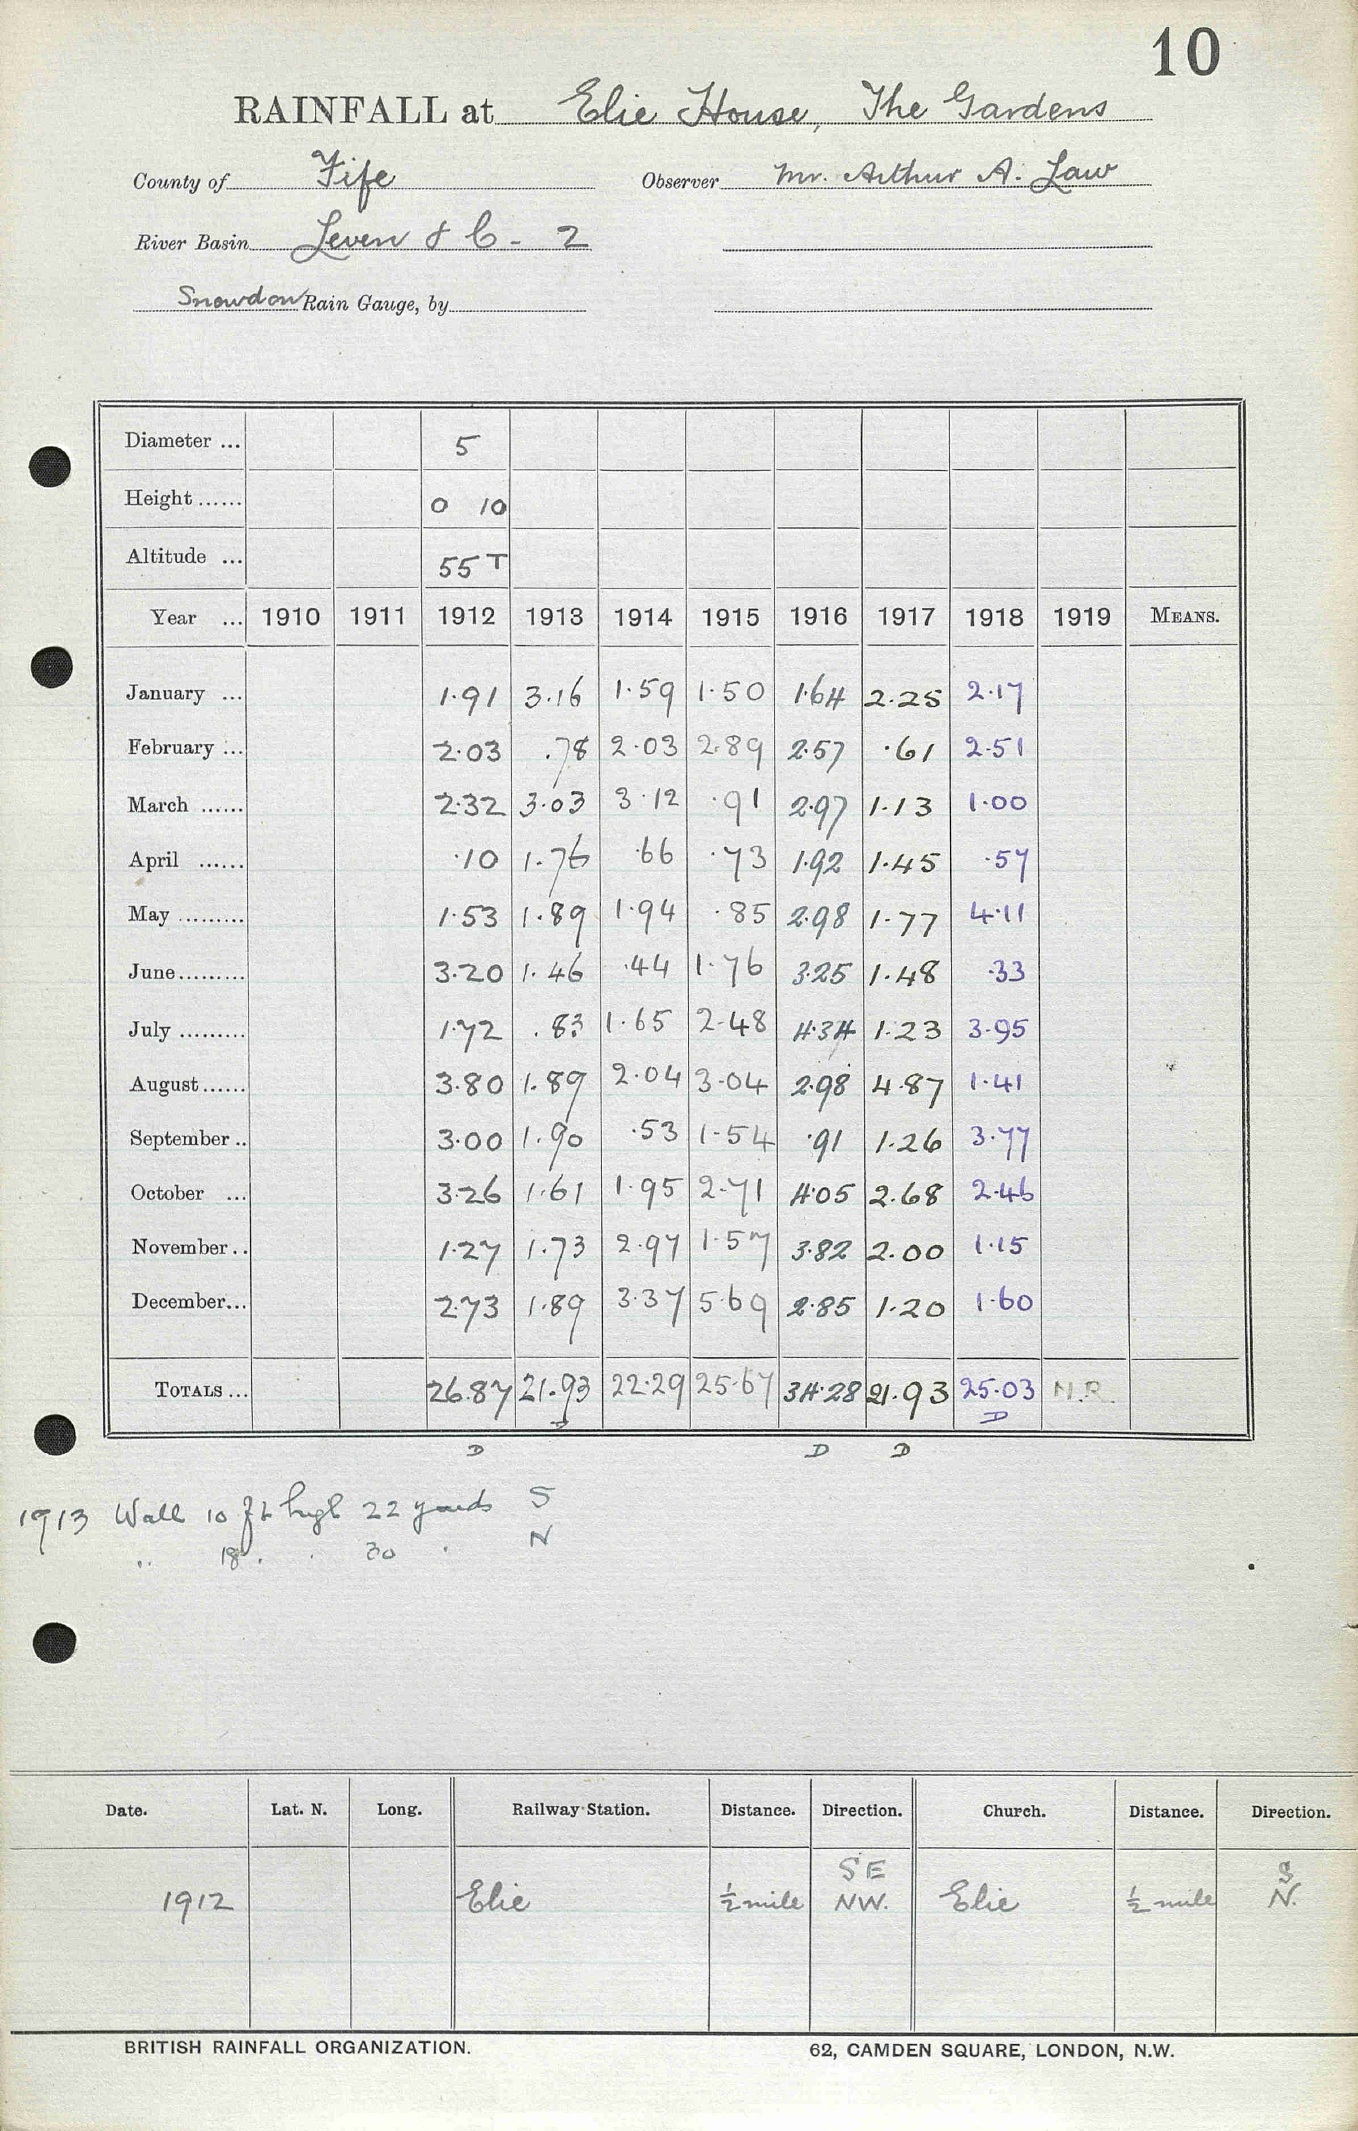 10
RAINFALL at Elie House, The Gardens
County of Fife Observer Mr. Arthur A. Law
River Basin Leven & C - 2
Snowdon Rain Gauge, by
Diameter ... 5
Height ...... 0 10
Altitude ... 55 T
Year ... 1910 1911 1912 1913 1914 1915 1916 1917 1918 1919 MEANS.
January ... 1.91 3.16 1.59 1.50 1.64 2.25 2.17
February ... 2.03 .78 2.03 2.89 2.57 .61 2.51
March ...... 2.32 3.03 3.12 .91 2.97 1.13 1.00
April ...... .10 1.76 .66 .73 1.92 1.45 .57
May ......... 1.53 1.89 1.94 .85 2.98 1.77 4.11
June......... 3.20 1.46 .44 1.76 3.25 1.48 .33
July ......... 1.72 .83 1.65 2.48 4.34 1.23 3.95
August...... 3.80 1.89 2.04 3.04 2.98 4.87 1.41
September .. 3.00 1.90 .53 1.54 .91 1.26 3.77
October ... 3.26 1.61 1.95 2.71 4.05 2.68 2.46
November .. 1.27 1.73 2.97 1.57 3.82 2.00 1.15
December... 2.73 1.89 3.37 5.69 2.85 1.20 1.60
TOTALS ... 26.87 21.93 22.29 25.67 34.28 21.93 25.03 N.R.
D D
D D D
1913 Wall 10 ft high 22 yards S
" 18 . . 30 . N
Date. Lat. N. Long. Railway Station. Distance. Direction. Church. Distance. Direction.
SE S
1912 Elie ½ mile NW. Elie ½ mile N.
BRITISH RAINFALL ORGANIZATION. 62, CAMDEN SQUARE, LONDON, N.W.